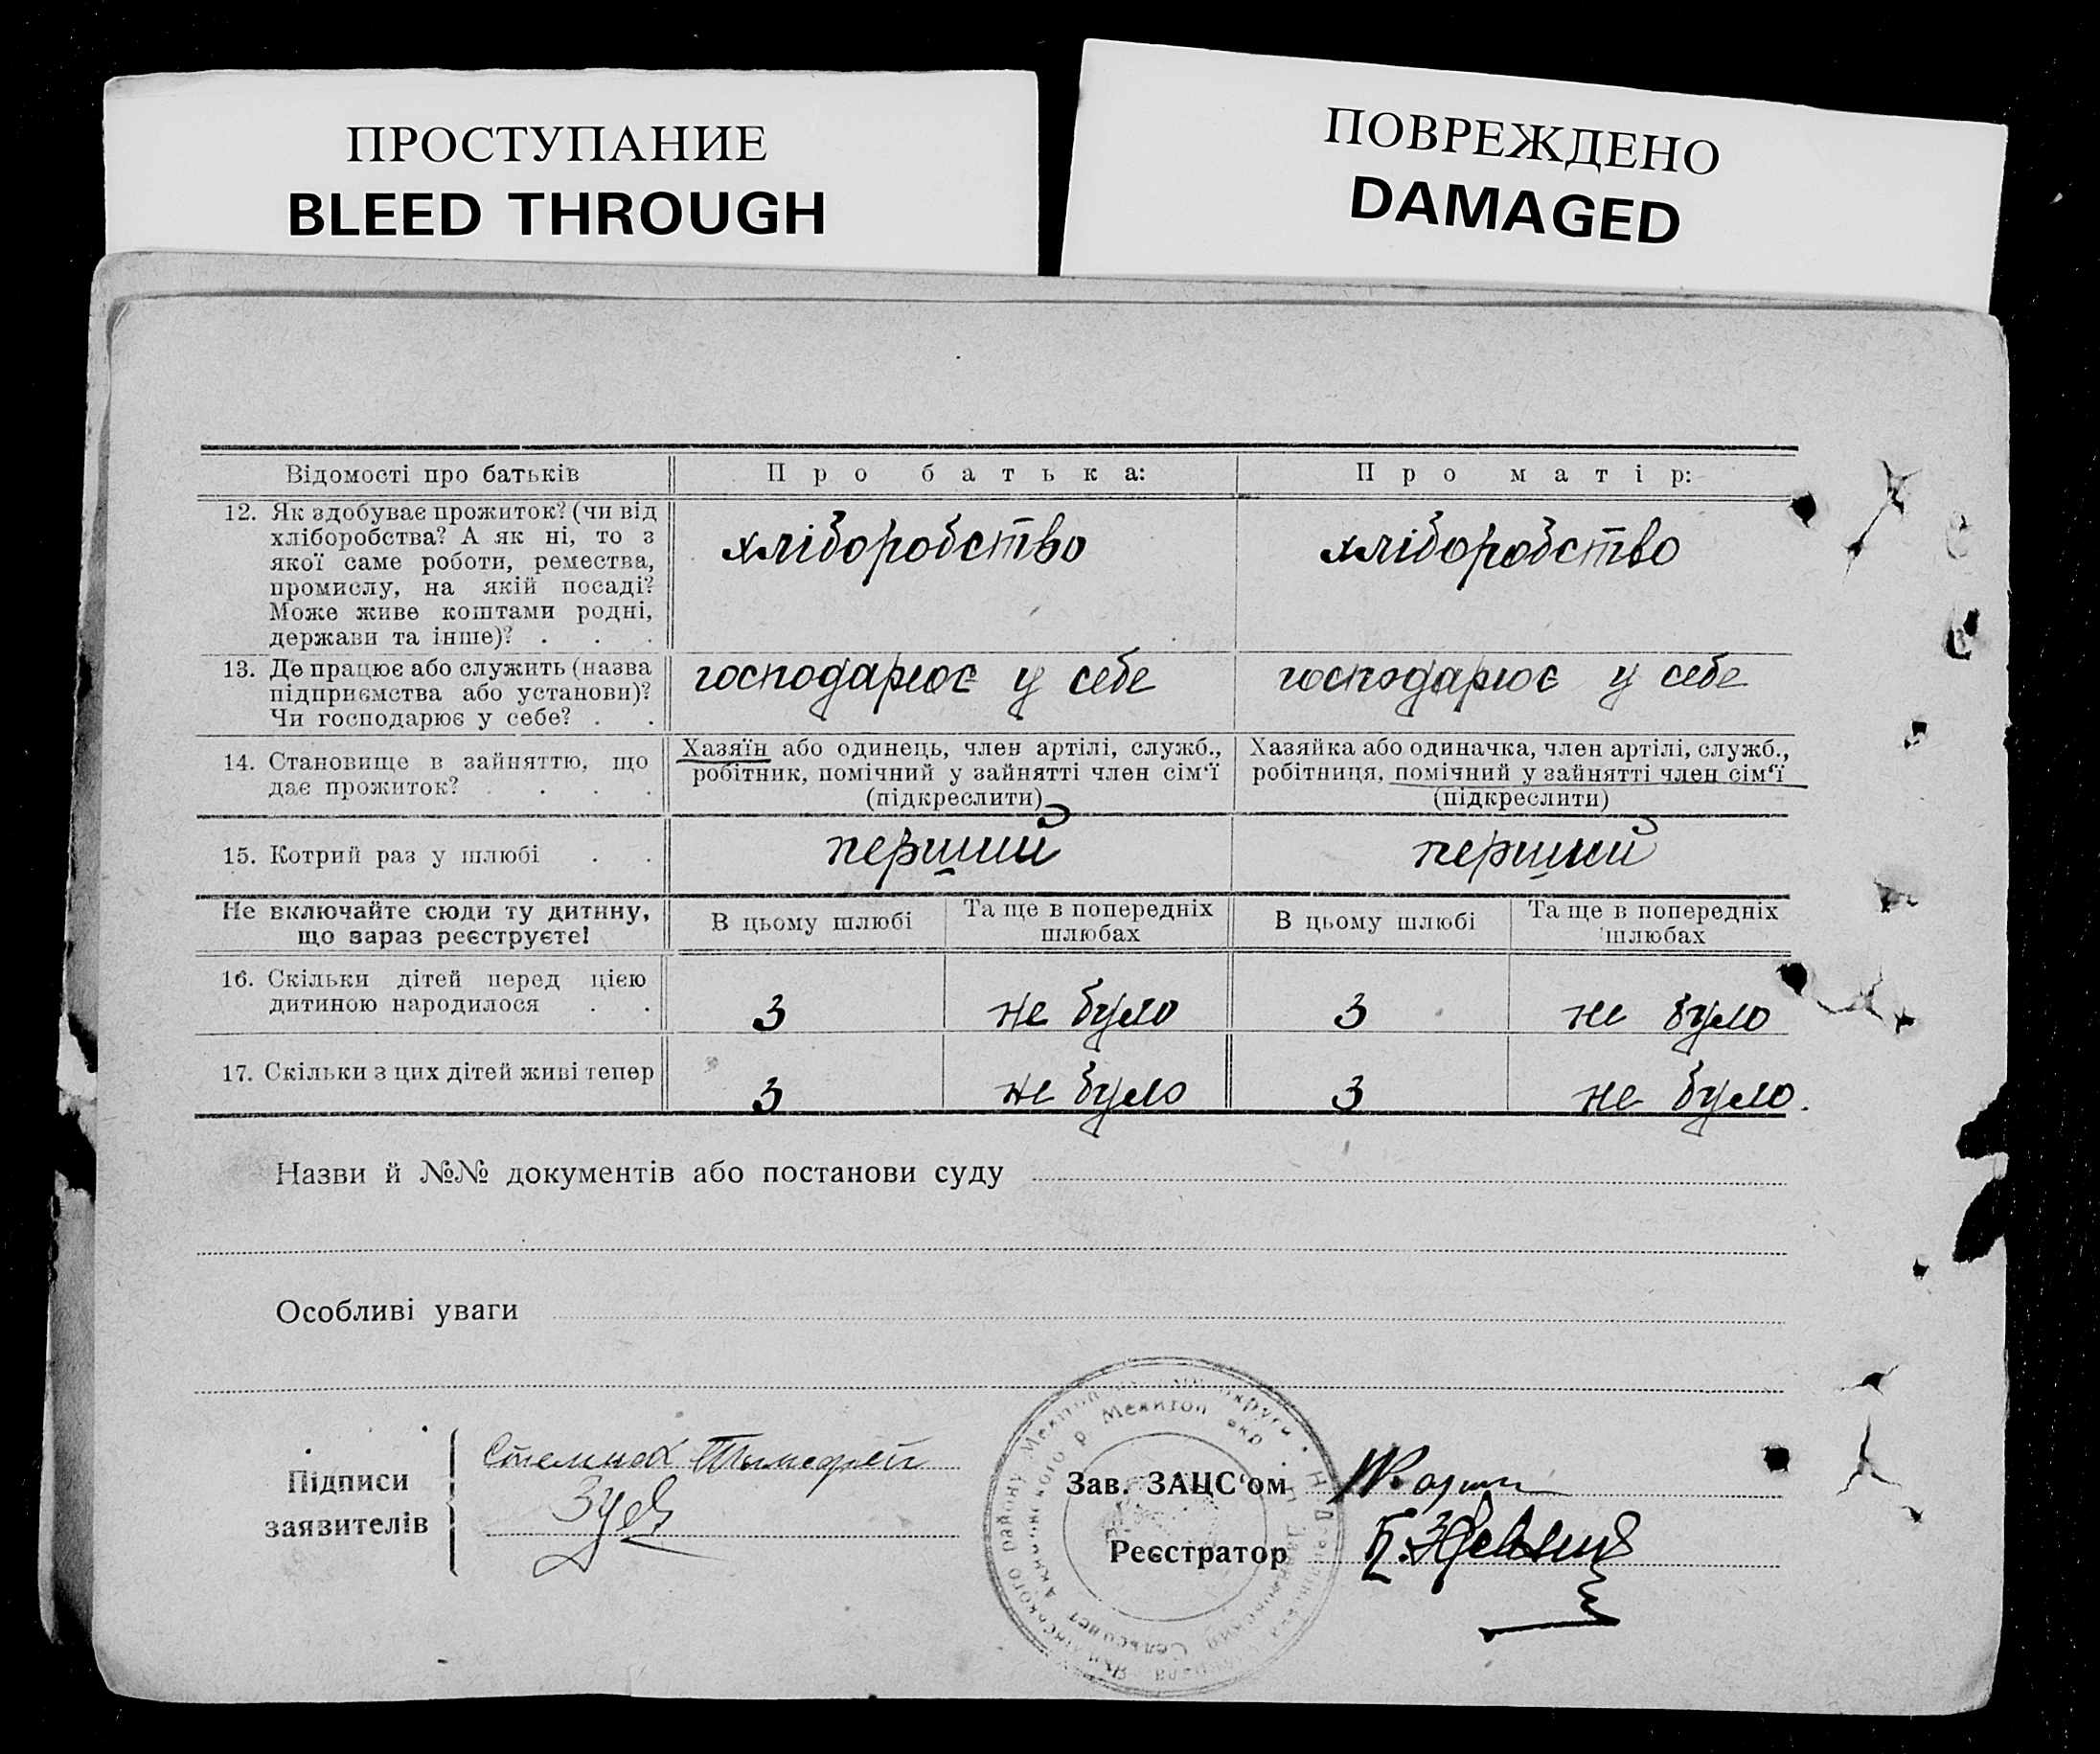 ПРОСТУПАНИЕ
BLEED THROUGH
ПОВРЕЖДЕНО
DAMAGED
Відомості про батьків
Про батька:
Про матір:
12. Як здобуває прожиток? (чи від
хліборобства? А як ні, то з
якої саме роботи, ремества,
промислу, на якій посаді?
Може живе коштами родні,
держави та інше)? . . .
хліборобство
хліборобство
13. Де працює або служить (назва
підприємства або установи)?
Чи господарює у себе? . .
господарює у себе
господарює у себе
14. Становище в зайняттю, що
дає прожиток? . . . .
Хазяїн або одинець, член артілі, служб.,
робітник, помічний у зайнятті член сім'ї
(підкреслити)
Хазяйка або одиначка, член артілі, служб.,
робітниця, помічний у зайнятті член сім'ї
(підкреслити)
15. Котрий раз у шлюбі . .
перший
перший
Не включайте сюди ту дитину,
що зараз реєструєте!
В цьому шлюбі
Та ще в попередніх
шлюбах
В цьому шлюбі
Та ще в попередніх
шлюбах
16. Скільки дітей перед цією
дитиною народилося . .
3
не було
3
не було
17. Скільки з цих дітей живі тепер
3
не було
3
не було.
Назви й №№ документів або постанови суду
Особливі уваги
Підписи
заявителів
Зав. ЗАЦС'ом
Реєстратор